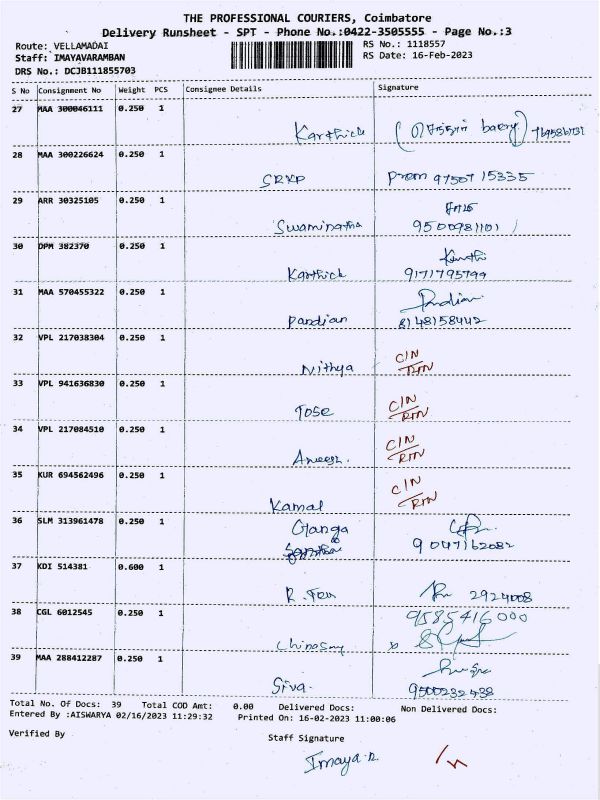 THE PROFESSIONAL COURIERS, Coimbatore
Delivery Runsheet - SPT - Phone No.:0422-3505555 - Page No.:3
Route: VELLAMADAI RS No.: 1118557
Staff: IMAYAVARAMBAN RS Date: 16-Feb-2023
DRS No.: DCJB111855703
S No Consignment No Weight PCS Consignee Details Signature
27 MAA 300046111 0.250 1
Karthick
28 MAA 300226624 0.250 1
prem 97507 15335
29 ARR 30325105 0.250 1
Swaminatha 9500981101
30 DPM 382370 0.250 1
Karthick 9171795799
31 MAA 570455322 0.250 1
Pandian
Pandian 8148158442
32 VPL 217038304 0.250 1
Nithya C/N
RTN
33 VPL 941636830 0.250 1
Jose C/N
RTN
34 VPL 217084510 0.250 1
Aneesh. C/N
RTN
35 KUR 694562496 0.250 1
Kamal C/N
RTN
36 SLM 313961478 0.250 1
Ganga
9047162082
37 KDI 514381 0.600 1
2924008
38 CGL 6012545 0.250 1
9585416000
39 MAA 288412287 0.250 1
Siva. 9500232438
Total No. Of Docs: 39 Total COD Amt: 0.00 Delivered Docs: Non Delivered Docs:
Entered By :AISWARYA 02/16/2023 11:29:32 Printed On: 16-02-2023 11:00:06
Verified By Staff Signature
Imaya.R.